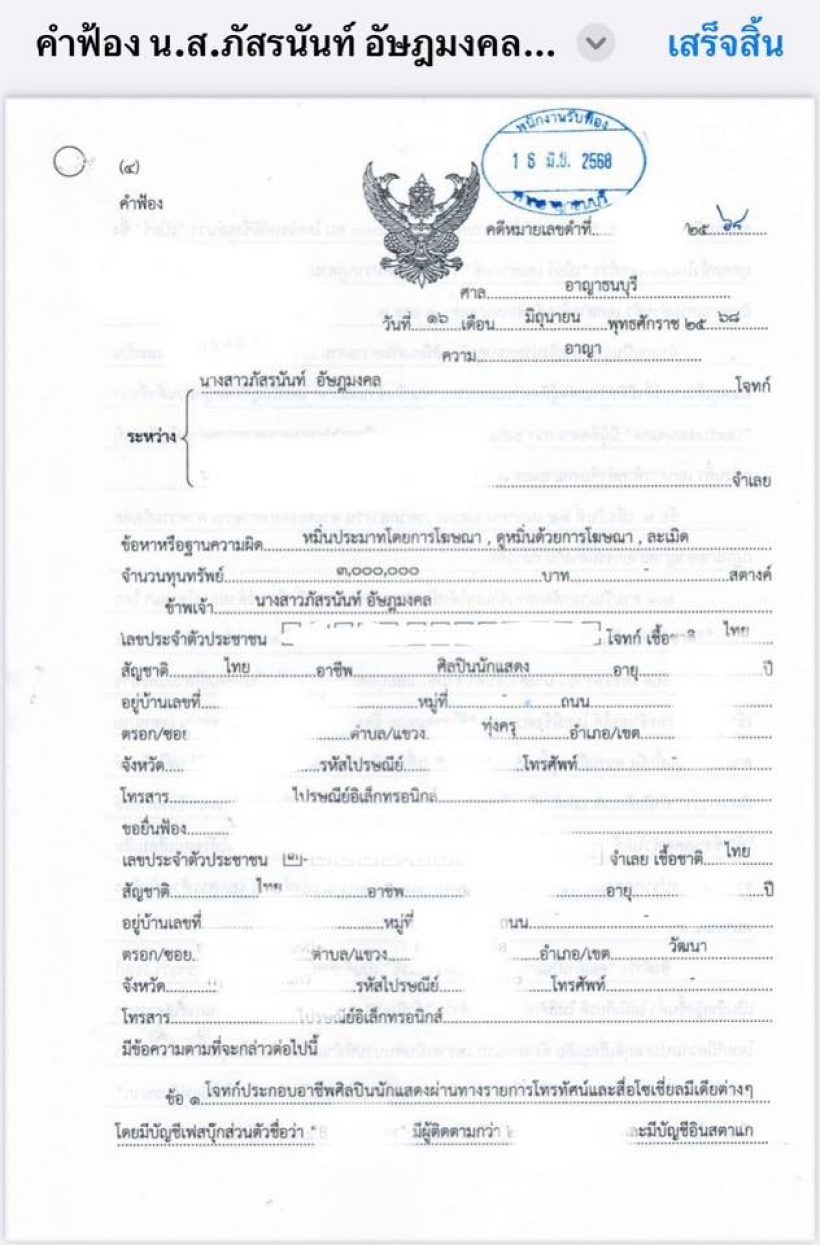 คำฟ้อง น.ส.ภัสรนันท์ อัษฎมงคล...
เสร็จสิ้น
พนักงานรับฟ้อง
1 6 มิ.ย. 2568
(๔)
คำฟ้อง
คดีหมายเลขดำที่ ๒๕ ๖๘
ศาล อาญาธนบุรี
วันที่ ๑๖ เดือน มิถุนายน พุทธศักราช ๒๕ ๖๘
ความ อาญา
นางสาวภัสรนันท์ อัษฎมงคล โจทก์
ระหว่าง
จำเลย
ข้อหาหรือฐานความผิด หมิ่นประมาทโดยการโฆษณา , ดูหมิ่นด้วยการโฆษณา , ละเมิด
จำนวนทุนทรัพย์ ๓,๐๐๐,๐๐๐ บาท - สตางค์
ข้าพเจ้า นางสาวภัสรนันท์ อัษฎมงคล
เลขประจำตัวประชาชน โจทก์ เชื้อชาติ ไทย
สัญชาติ ไทย อาชีพ ศิลปินนักแสดง อายุ ปี
อยู่บ้านเลขที่ หมู่ที่ - ถนน
ตรอก/ซอย ตำบล/แขวง ทุ่งครุ อำเภอ/เขต
จังหวัด รหัสไปรษณีย์ โทรศัพท์ -
โทรสาร ไปรษณีย์อิเล็กทรอนิกส์
ขอยื่นฟ้อง
เลขประจำตัวประชาชน จำเลย เชื้อชาติ ไทย
สัญชาติ ไทย อาชีพ อายุ ปี
อยู่บ้านเลขที่ หมู่ที่ ถนน -
ตรอก/ซอย ตำบล/แขวง อำเภอ/เขต วัฒนา
จังหวัด รหัสไปรษณีย์ โทรศัพท์ -
โทรสาร ไปรษณีย์อิเล็กทรอนิกส์
มีข้อความตามที่จะกล่าวต่อไปนี้
ข้อ ๑ โจทก์ประกอบอาชีพศิลปินนักแสดงผ่านทางรายการโทรทัศน์และสื่อโซเชี่ยลมีเดียต่างๆ
โดยมีบัญชีเฟสบุ๊กส่วนตัวชื่อว่า " มีผู้ติดตามกว่า และมีบัญชีอินสตาแก